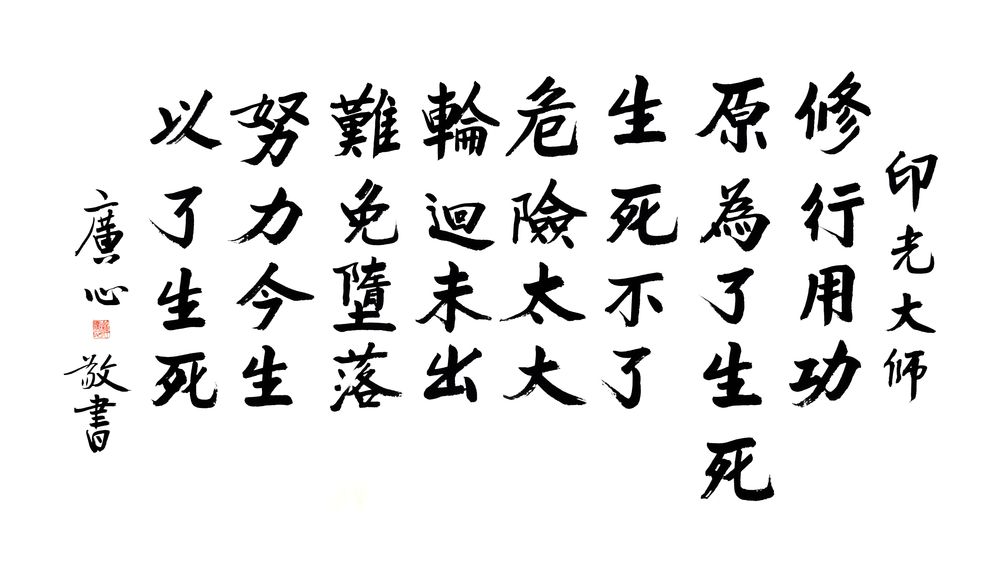 印光大师
修行用功
原為了生死
生死不了
危險太大
輪迴未出
難免墮落
努力今生
以了生死
廣心
敬書